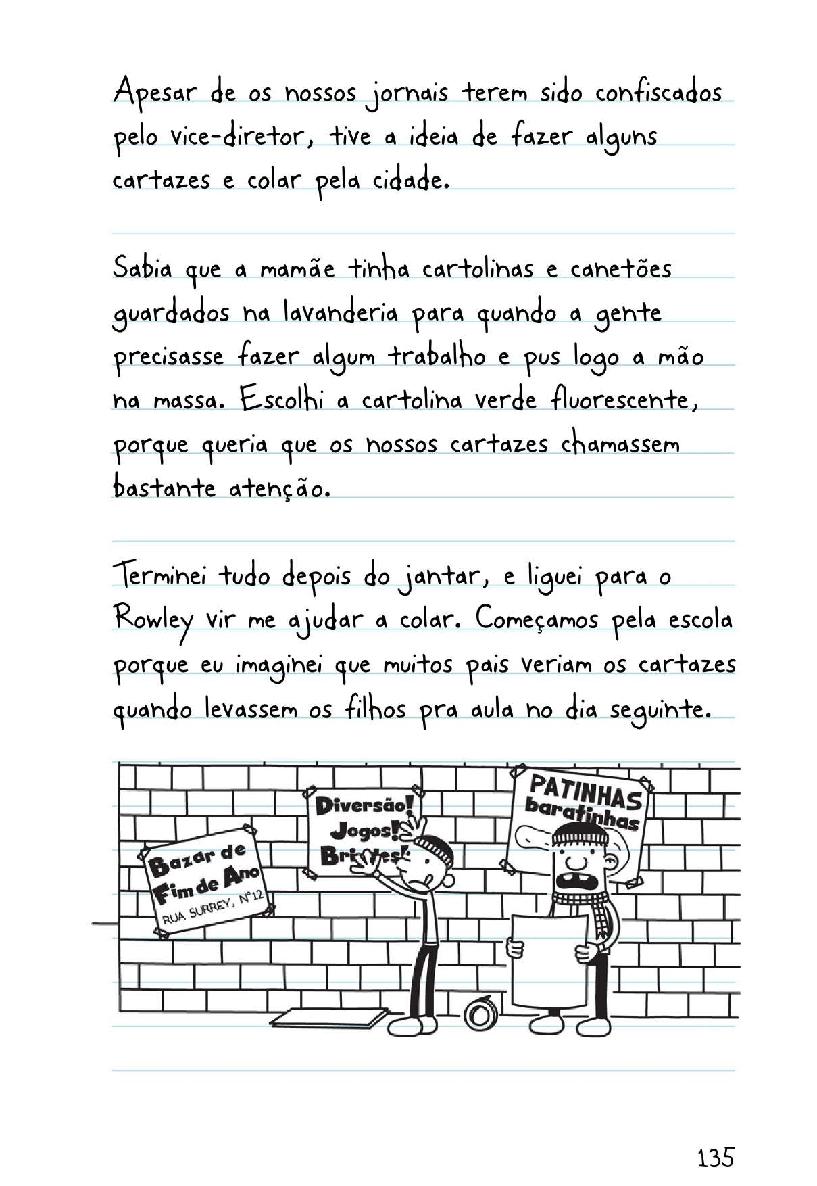 Apesar de os nossos jornais terem sido confiscados
pelo vice-diretor, tive a ideia de fazer alguns
cartazes e colar pela cidade.
Sabia que a mamãe tinha cartolinas e canetões
guardados na lavanderia para quando a gente
precisasse fazer algum trabalho e pus logo a mão
na massa. Escolhi a cartolina verde fluorescente,
porque queria que os nossos cartazes chamassem
bastante atenção.
Terminei tudo depois do jantar, e liguei para o
Rowley vir me ajudar a colar. Começamos pela escola
porque eu imaginei que muitos pais veriam os cartazes
quando levassem os filhos pra aula no dia seguinte.
Bazar de
Fim de Ano
RUA SURREY, Nº12
Diversão!
Jogos!
Brindes!
PATINHAS
baratinhas
135